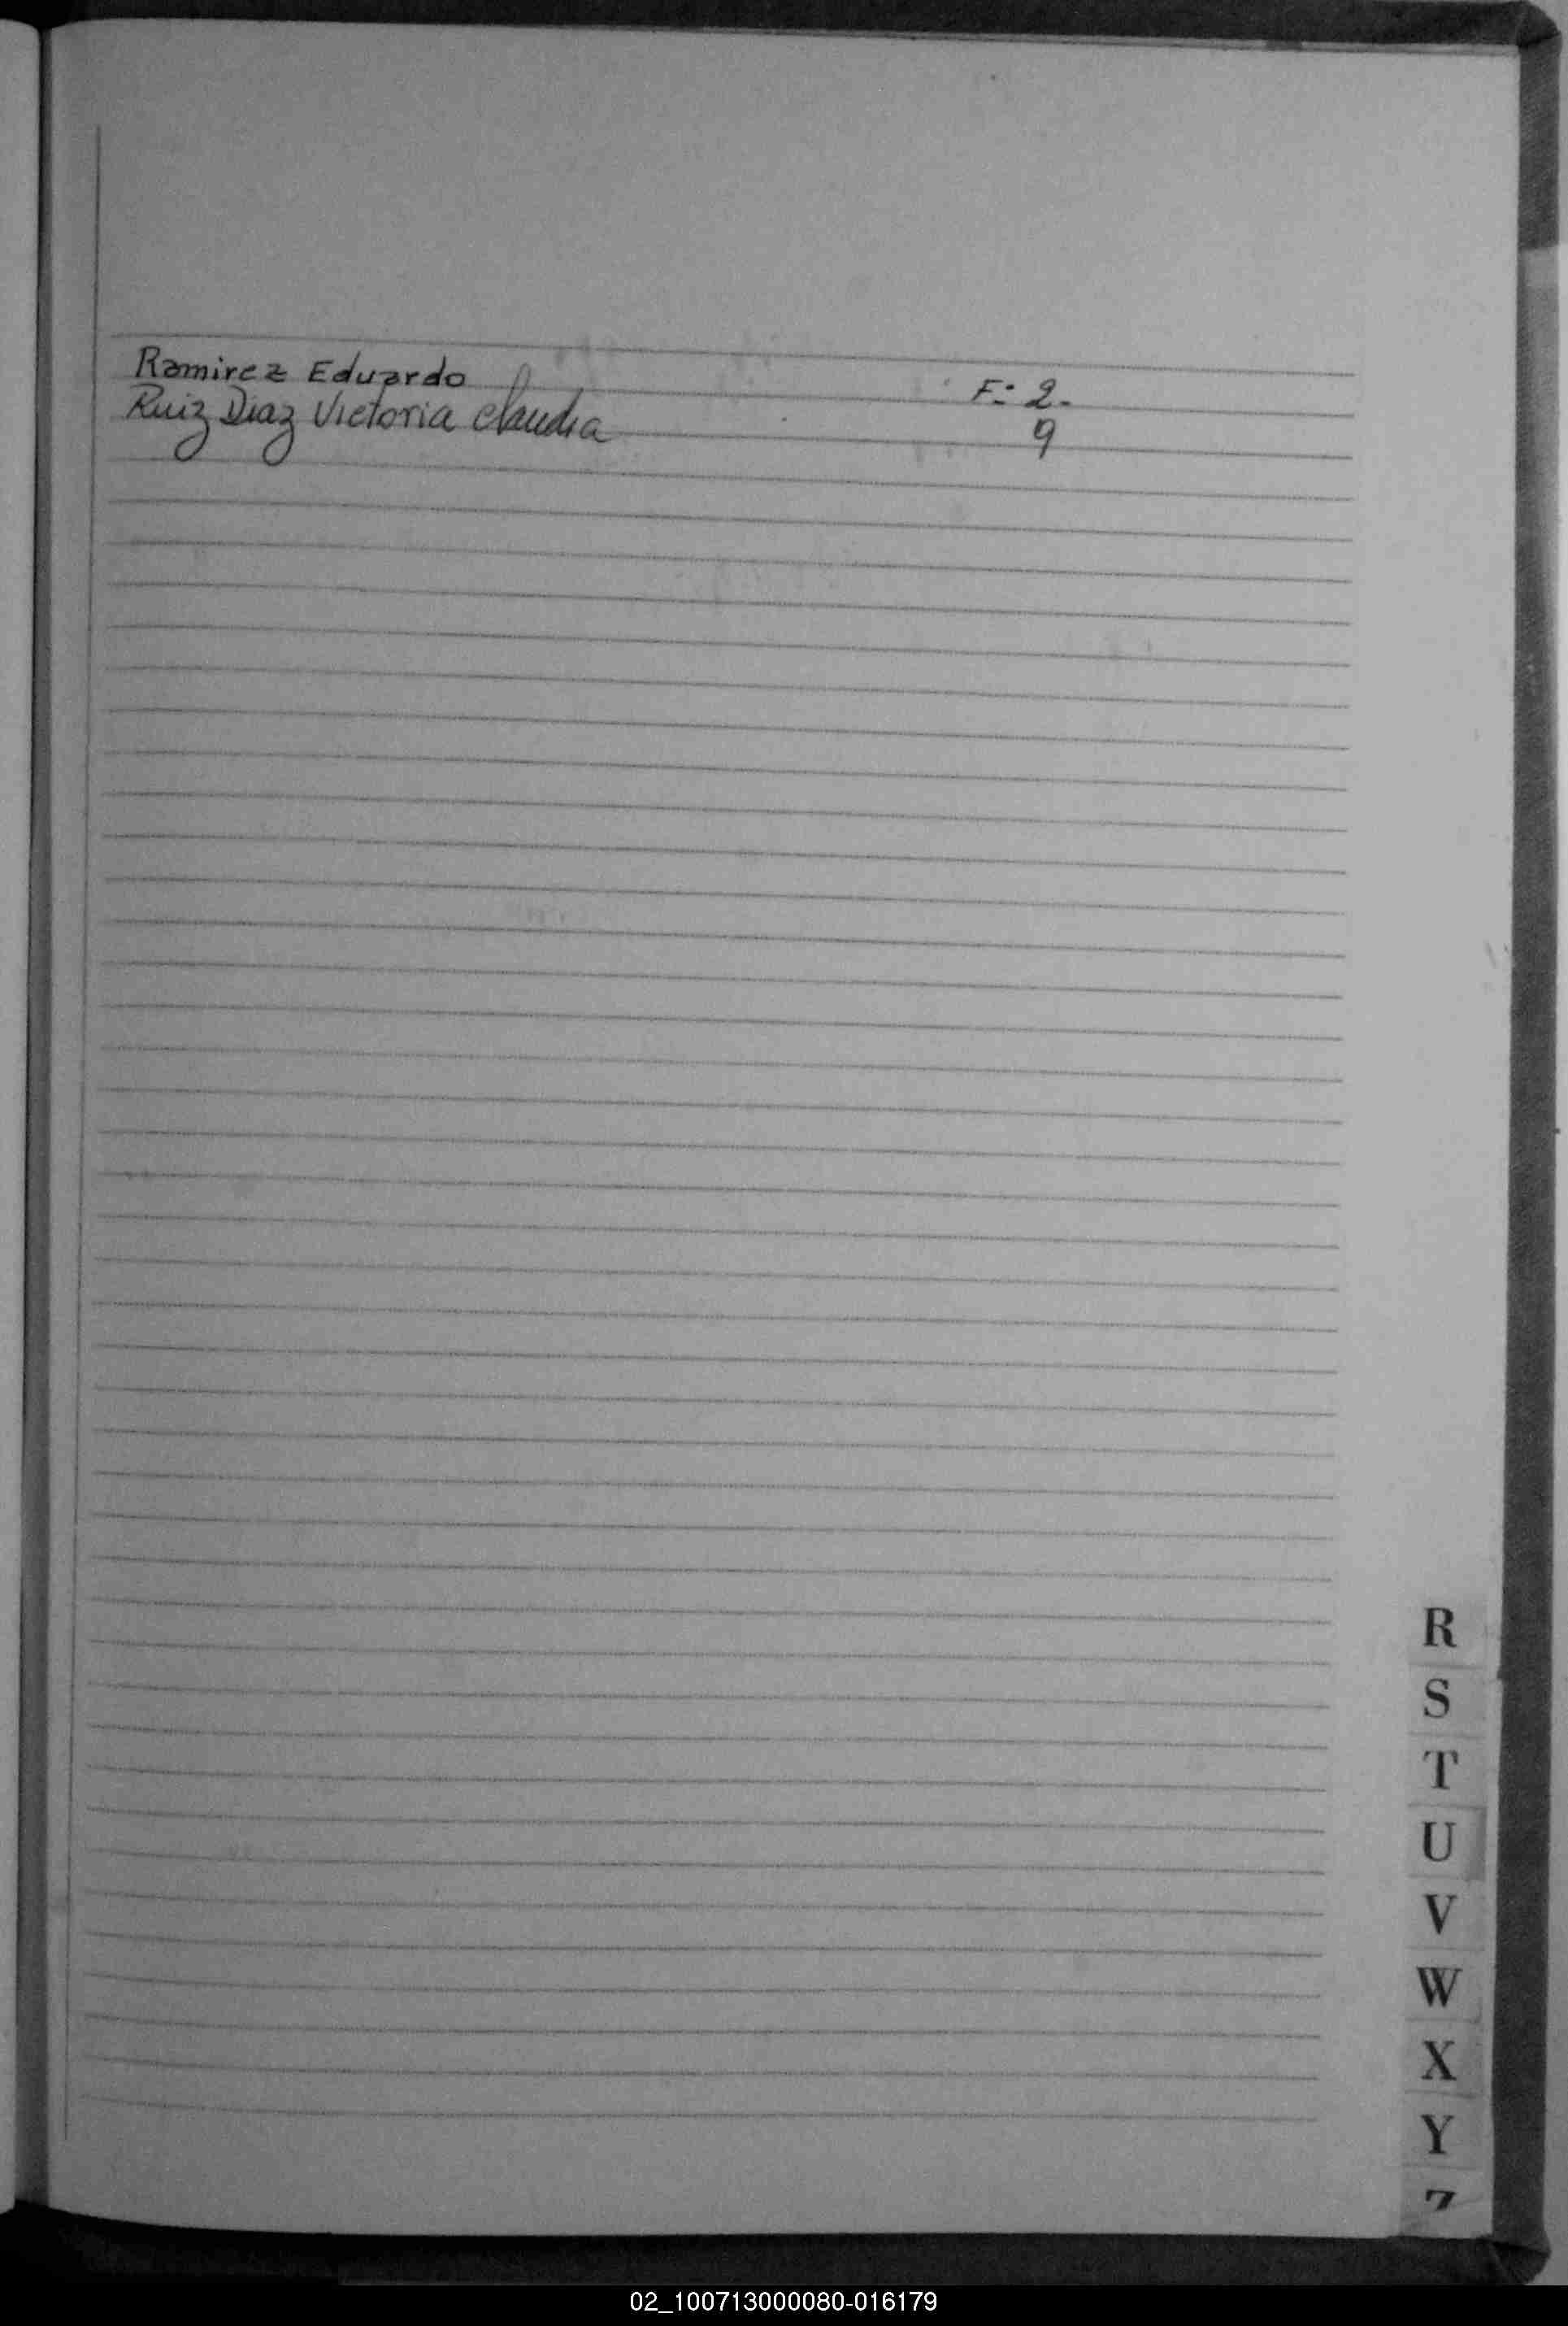 Ramirez Eduardo F= 2-
Ruiz Diaz Victoria Claudia 9
R
S
T
U
V
W
X
Y
Z
02_100713000080-016179